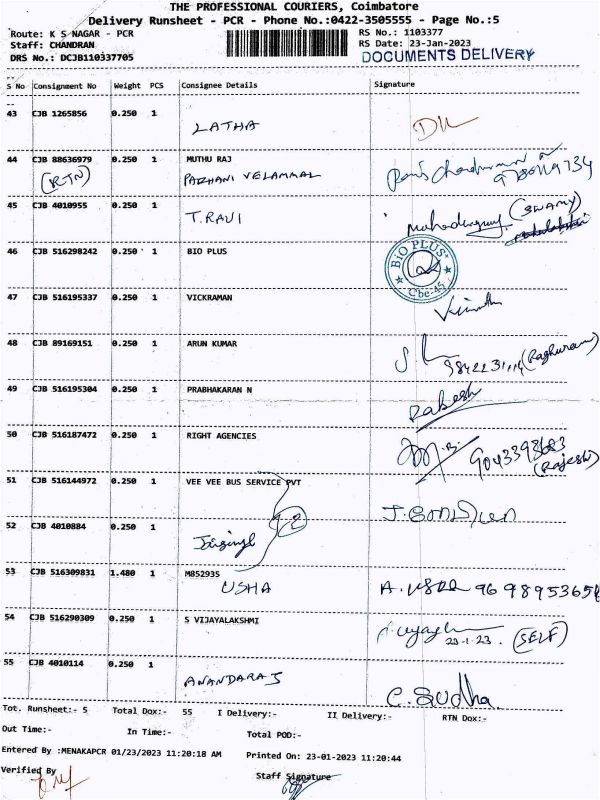 THE PROFESSIONAL COURIERS, Coimbatore
Delivery Runsheet - PCR - Phone No.:0422-3505555 - Page No.:5
Route: K S NAGAR - PCR RS No.: 1103377
Staff: CHANDRAN RS Date: 23-Jan-2023
DRS No.: DCJB110337705 DOCUMENTS DELIVERY
S No Consignment No Weight PCS Consignee Details Signature
43 CJB 1265856 0.250 1
LATHA
44 CJB 88636979 0.250 1 MUTHU RAJ
(RTN) PAZHANI VELAMMAL
45 CJB 4010955 0.250 1
T.RAVI (SWAMY)
46 CJB 516298242 0.250 1 BIO PLUS
BIO PLUS
Cbe-45
47 CJB 516195337 0.250 1 VICKRAMAN
48 CJB 89169151 0.250 1 ARUN KUMAR
(Raghuram)
49 CJB 516195304 0.250 1 PRABHAKARAN N
Rakesh
50 CJB 516187472 0.250 1 RIGHT AGENCIES
(Rajesh)
51 CJB 516144972 0.250 1 VEE VEE BUS SERVICE PVT
52 CJB 4010884 0.250 1
Jaisingh
53 CJB 516309831 1.480 1 M852935
USHA
54 CJB 516290309 0.250 1 S VIJAYALAKSHMI
23-1-23. (SELF)
55 CJB 4010114 0.250 1
ANANDARAJ C. Sudha.
Tot. Runsheet:- 5 Total Dox:- 55 I Delivery:- II Delivery:- RTN Dox:-
Out Time:- In Time:- Total POD:-
Entered By :MENAKAPCR 01/23/2023 11:20:18 AM Printed On: 23-01-2023 11:20:44
Verified By Staff Signature